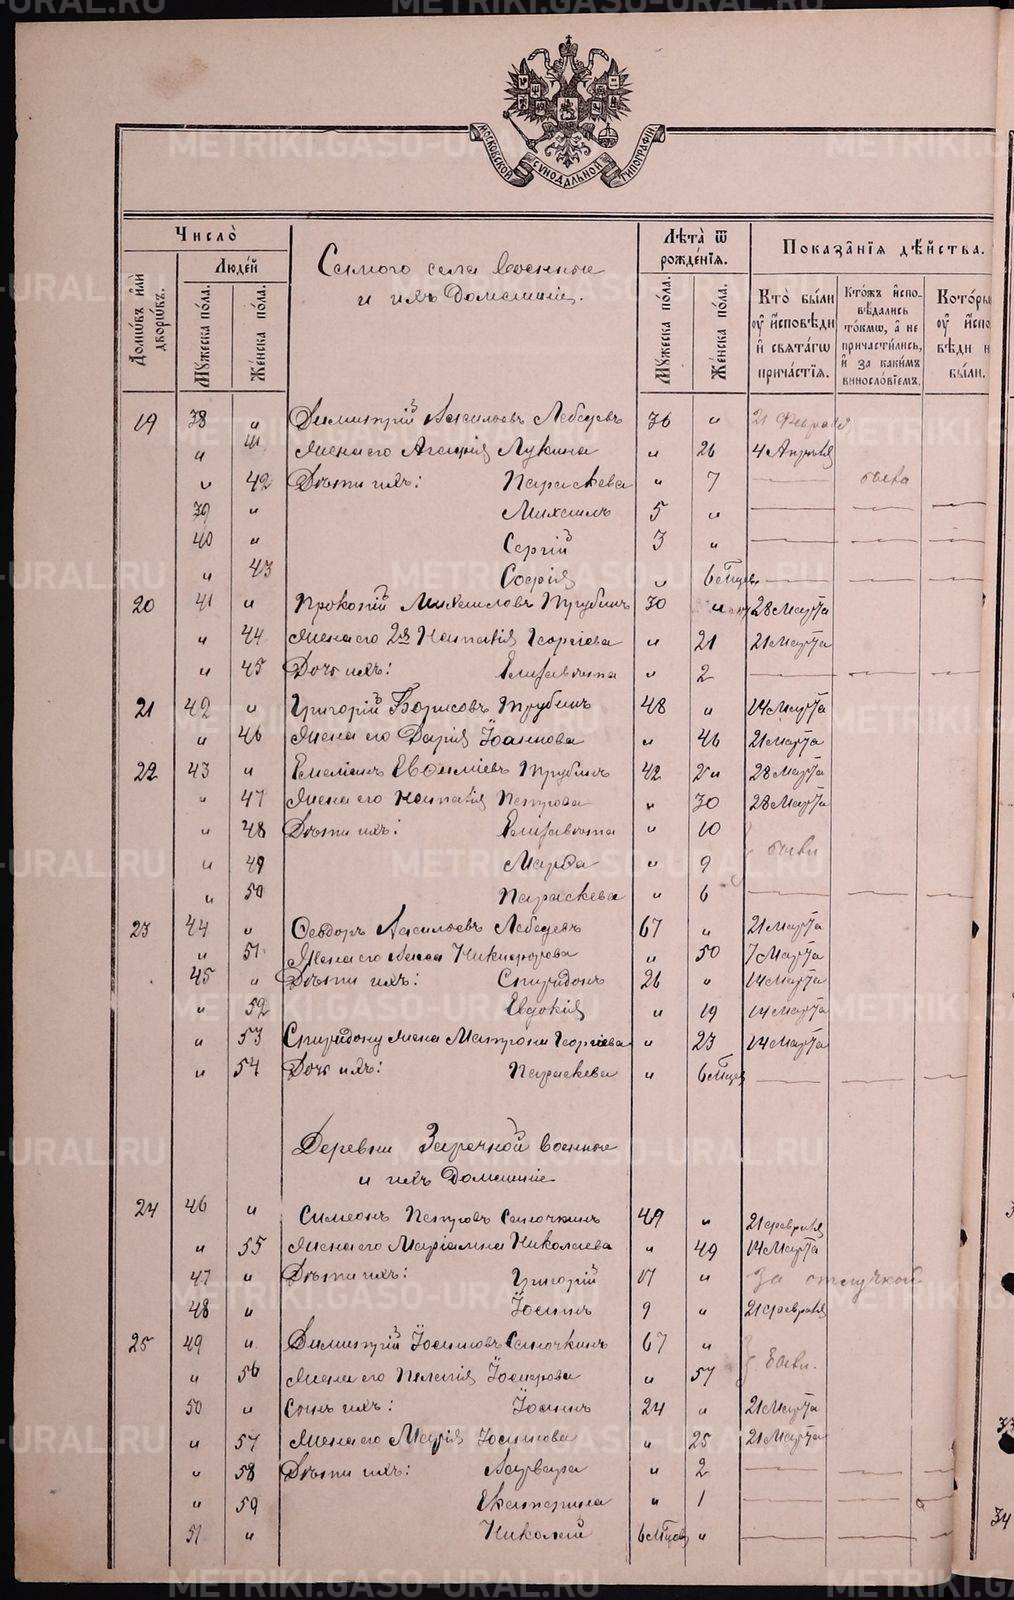 МОСКОВСКОЙ СѴНОДАЛЬНОЙ ТИПОГРАФІИ
Число̀
Людей
Домѡвъ или дворѡвъ.
Мꙋжеска пола.
Женска пола.
Самого села военные
и ихъ домашніе.
Лѣта ѿ рожденїѧ.
Мꙋжеска пола.
Женска пола.
Показанїѧ дѣйства.
Кто были оу исповѣди и свѧтагѡ причастїѧ.
Ктожъ исповѣдались токмѡ, а не причастились, и за какимъ винословїемъ.
Которы оу испо вѣди н были.
19 38 „ Димитрій Васильевъ Лебедевъ 36 „ 21 Февраля
„ 41 Жена его Агафія Лукина „ 26 4 Апрѣля
„ 42 Дѣти ихъ: Параскева „ 7 —
39 „ Михаилъ 5 „ — — —
40 „ Сергій 3 „ — — —
„ 43 Софія „ 6 мѣцев. — — —
20 41 „ Прокопій Михаиловъ Трубинъ 30 „ 28 Марта
„ 44 Жена его 2я Наталія Георгіева „ 21 21 Марта
„ 45 Дочь ихъ: Елизавета „ 2 — — —
21 42 „ Григорій Борисовъ Трубинъ 48 „ 14 Марта
„ 46 Жена его Дарія Іоаннова „ 46 21 Марта
22 43 „ Емеліанъ Евѳиміевъ Трубинъ 42 „ 28 Марта
„ 47 Жена его Наталія Петрова „ 30 28 Марта
„ 48 Дѣти ихъ: Елизавета „ 10
„ 49 Марѳа „ 9
„ 50 Параскева „ 6 — — —
23 44 „ Ѳеодоръ Васильевъ Лебедевъ 67 „ 21 Марта
„ 51 Жена его Анна Никифорова „ 50 7 Марта
45 „ Дѣти ихъ: Спиридонъ 26 „ 14 Марта
„ 52 Евдокія „ 19 14 Марта
„ 53 Спиридону жена Матрона Георгіева „ 23 14 Марта
„ 54 Дочь ихъ: Параскева „ 6 мѣцев — — —
Деревни Заречной военные
и ихъ домашніе
24 46 „ Симеонъ Петровъ Саночкинъ 49 „ 21 февраля
„ 55 Жена его Маріамна Николаева „ 49 14 Марта
47 „ Дѣти ихъ: Григорій 17 „ за отлучкой
48 „ Іоаннъ 9 „ 21 февраля
25 49 „ Димитрій Іоанновъ Саночкинъ 67 „
„ 56 Жена его Пелагія „ 57
50 „ Сынъ ихъ: Іоаннъ 24 „ 21 Марта
„ 57 Жена его Марія „ 25 21 Марта
„ 58 Дѣти ихъ: Варвара „ 2 — — —
„ 59 Екатерина „ 1 — — —
51 „ Николай 6 мѣцев „ — — —
34
METRIKI.GASO-URAL.RU